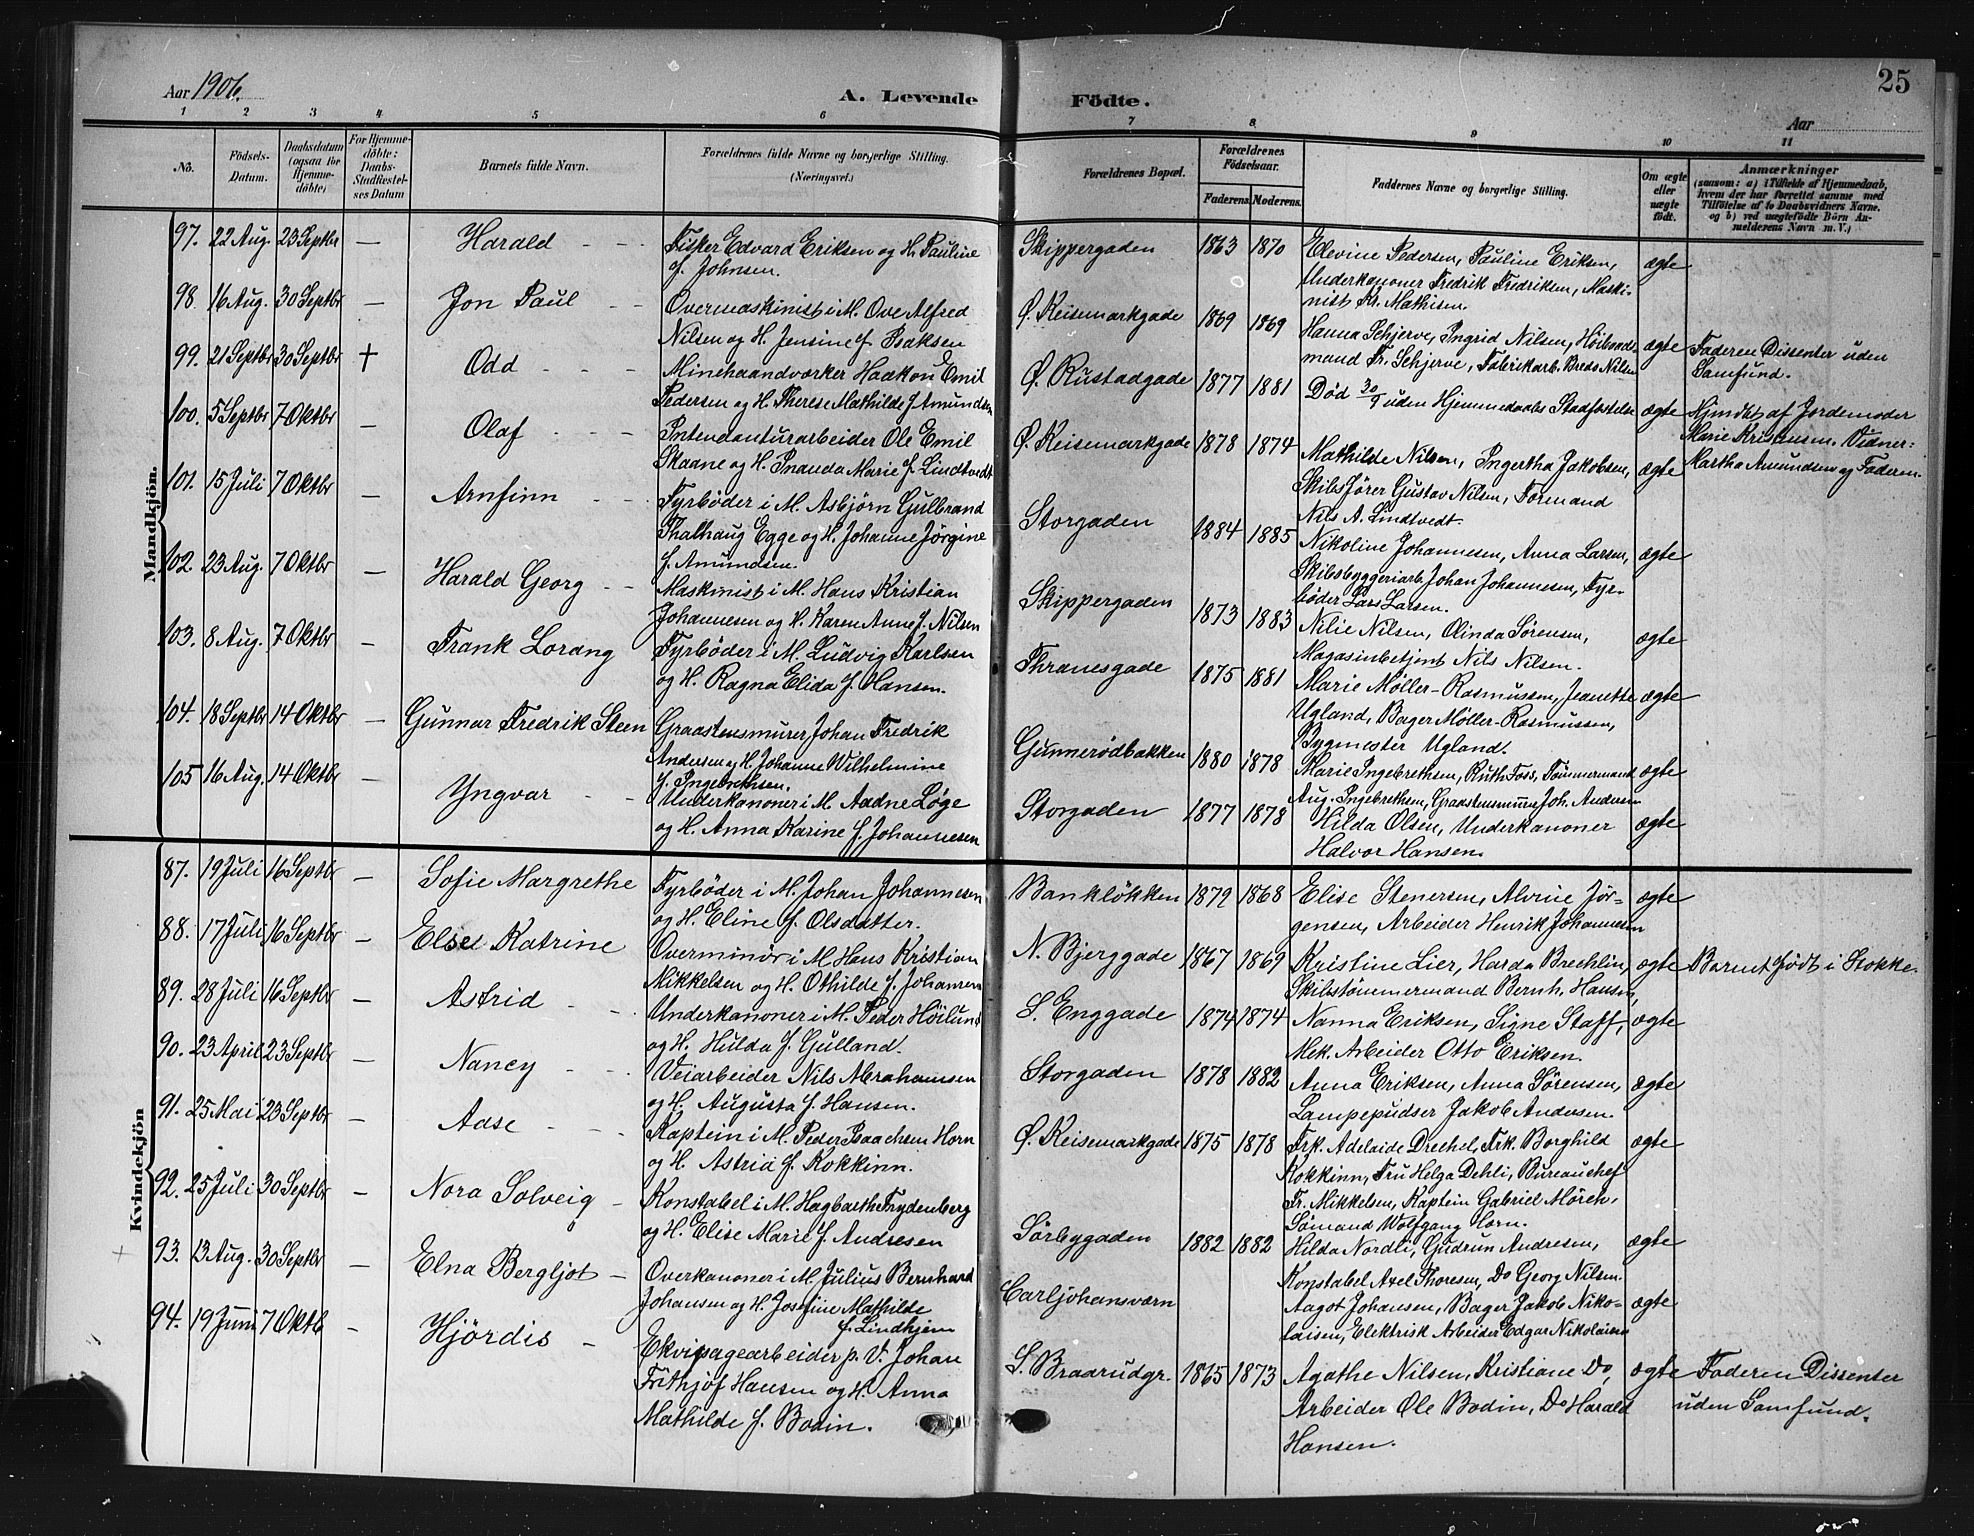 25
Aar 1906.
A. Levende Födte.
Aar
1 2 3 4 5 6 7 8 9 10 11
No.
Födsels-Datum.
Daabsdatum (ogsaa for Hjemme-døbte)
For Hjemme-döbte: Daabs-Stadfæstel-ses Datum
Barnets fulde Navn.
Forældrenes fulde Navne og borgerlige Stilling. (Næringsvei.)
Forældrenes Bopæl.
Forældrenes Födselsaar. Faderens. Moderens.
Faddernes Navne og borgerlige Stilling.
Om ægte eller uægte födt.
Anmærkninger
(saasom: a) i Tilfælde af Hjemmedaab, hvem der har forrettet samme med Tilföielse af to Daabsvidners Navne. og b) ved uægtefödte Börn An-melderens Navn m. V.)
Mandkjön.
97. 22 Aug. 23 Septbr — Harald
Fisker Edvard Eriksen og H. Pauline
f. Johnsen.
Skippergaden 1863 1870
Elevine Pedersen, Pauline Eriksen,
Underkanoner Fredrik Fredriksen, Maski-
nist Kr. Mathisen.
ægte
98. 16 Aug. 30 Septbr — Jon Paul
Overmaskinist i M. Ove Alfred
Nilsen og H. Jensine f. Isaksen
Ø. Keisemarkgade 1869 1869
Hanna Schjerve, Ingrid Nilsen, Höibaads-
mand Fr. Schjerve, Fabrikarb. Breds Nilsen
ægte
Faderen Dissenter uden
Samfund.
99. 21 Septbr 30 Septbr + Odd
Minehaandværker Haakon Emil
Pedersen og H. Therese Mathilde f. Amundsen
Ø. Rustadgade 1877 1881
Død 30/9 uden Hjemmedaabs Stadfæstelse
ægte
Hjmdbt af Jordemoder
Marie Kristensen. Vidner:
Martha Amundsen og Faderen
100. 5 Septbr 7 Oktbr — Olaf
Intendanturarbeider Ole Emil
Skaane og H. Inanda Marie f. Lindtvedt
Ø. Keisemarkgade 1878 1874
Mathilde Nilsen, Ingertha Jakobsen,
Skibsfører Gustav Nilsen, Formand
Nils A. Lindtvedt.
ægte
101. 15 Juli 7 Oktbr — Arnfinn
Fyrbøder i M. Asbjörn Gulbrand
Thalhaug Egge og H. Johanne Jörgine
f. Amundsen.
Storgaden 1884 1885
Nikoline Johannesen, Anna Larsen,
Skibsbyggeriarb. Johan Johannesen, Fyr-
bøder Lars Larsen.
ægte
102. 23 Aug. 7 Oktbr — Harald Georg
Maskinist i M. Hans Kristian
Johannesen og H. Karen Anne f. Nilsen
Skippergaden 1873 1883
Nilie Nilsen, Olinda Sørensen,
Magasinbetjent Nils Nilsen.
ægte
103. 8 Aug. 7 Oktbr — Frank Lorang
Fyrbøder i M. Ludvig Karlsen
og H. Ragna Elida f. Hansen.
Thranesgade 1875 1881
Marie Møller-Rasmussen, Jeanette
Ugland, Bager Møller-Rasmussen,
Bygmester Ugland.
ægte
104. 18 Septbr 14 Oktbr — Gunnar Fredrik Steen
Graastensmurer Johan Fredrik
Andersen og H. Johanne Wilhelmine
f. Ingebrethsen.
Gunnerødbakken 1880 1878
Marie Ingebrethsen, Ruth Foss, Tømmermand
Aug. Ingebrethsen, Graastensmurer Joh. Andersen
ægte
105 16 Aug. 14 Oktbr — Yngvar
Underkanoner i M. Aadne Løge
og H. Anna Karine f. Johannesen
Storgaden 1877 1878
Hilda Olsen, Underkanoner
Halvor Hansen.
ægte
Kvindekjön
87. 19 Juli 16 Septbr — Sofie Margrethe
Fyrbøder i M. Johan Johannesen
og H. Eline f. Olsdatter.
Bankløkken 1872 1868
Elise Stenersen, Alvine Jör-
gensen, Arbeider Henrik Johannesen
ægte
88. 17 Juli 16 Septbr — Else Katrine
Overminör i M Hans Kristian
Mikkelsen og H. Othilde f. Johansen
N. Bjerggade 1867 1869
Kristine Lier, Harda Brechlin,
Skibstømmermand Bernh. Hansen,
ægte
Barnet født i Stokke.
89. 28 Juli 16 Septbr — Astrid
Underkanoner i M. Peder Höilund
og H. Hulda f. Gulland.
S. Enggade 1874 1874
Nanna Eriksen, Signe Staff,
Mek. Arbeider Otto Eriksen.
ægte
90. 23 April 23 Septbr — Nancy
Veiarbeider Nils Abrahamsen
og H. Augusta f. Hansen.
Storgaden 1878 1882
Anna Eriksen, Anna Sørensen,
Lampepudser Jakob Andersen.
ægte
91. 25 Mai 23 Septbr — Aase
Kaptein i M. Peder Isaachsen Horn
og H. Astrid f. Kokkinn.
Ø. Keisemarkgade 1875 1878
Frk. Adelaide Drechel, Frk. Borghild
Kokkinn, Fru Helga Dehli, Bureauchef
Fr. Mikkelsen, Kaptein Gabriel Mörch,
Sømand Wolfgang Horn.
ægte
92. 25 Juli 30 Septbr — Nora Solveig
Konstabel i M. Hagbarth Frydenberg
og H. Elise Marie f. Andresen
Sørbygaden 1882 1882
Hilda Nordli, Gudrun Andresen,
Konstabel Axel Thoresen, Do Georg Nilsen.
ægte
93. 13 Aug. 30 Septbr — Elna Bergljot
Overkanoner i M. Julius Bernhard
Johansen og H. Josefine Mathilde
f. Lindhjem
Carljohansværn
Aagot Johansen, Bager Jakob Niko-
laisen, Elektrisk Arbeider Edgar Nikolaisen
ægte
94. 19 Juni 7 Oktb — Hjördis
Ekvipagearbeider p. V. Johan
Frithjof Hansen og H. Anna
Mathilde f. Bodin.
S. Braarudgr. 1865 1873
Agathe Nilsen, Kristiane Do,
Arbeider Ole Bodin, Do Harald
Hansen.
ægte
Faderen Dissenter
uden Samfund.